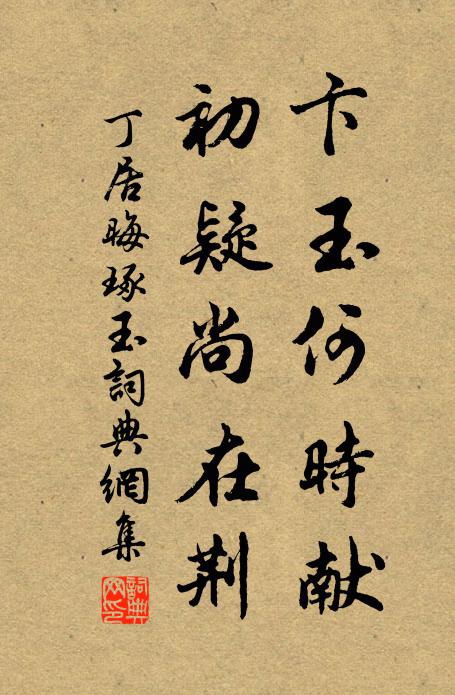 卞玉何時献
初疑尚在荆
丁居晦琢玉詞典網集
詞典網印